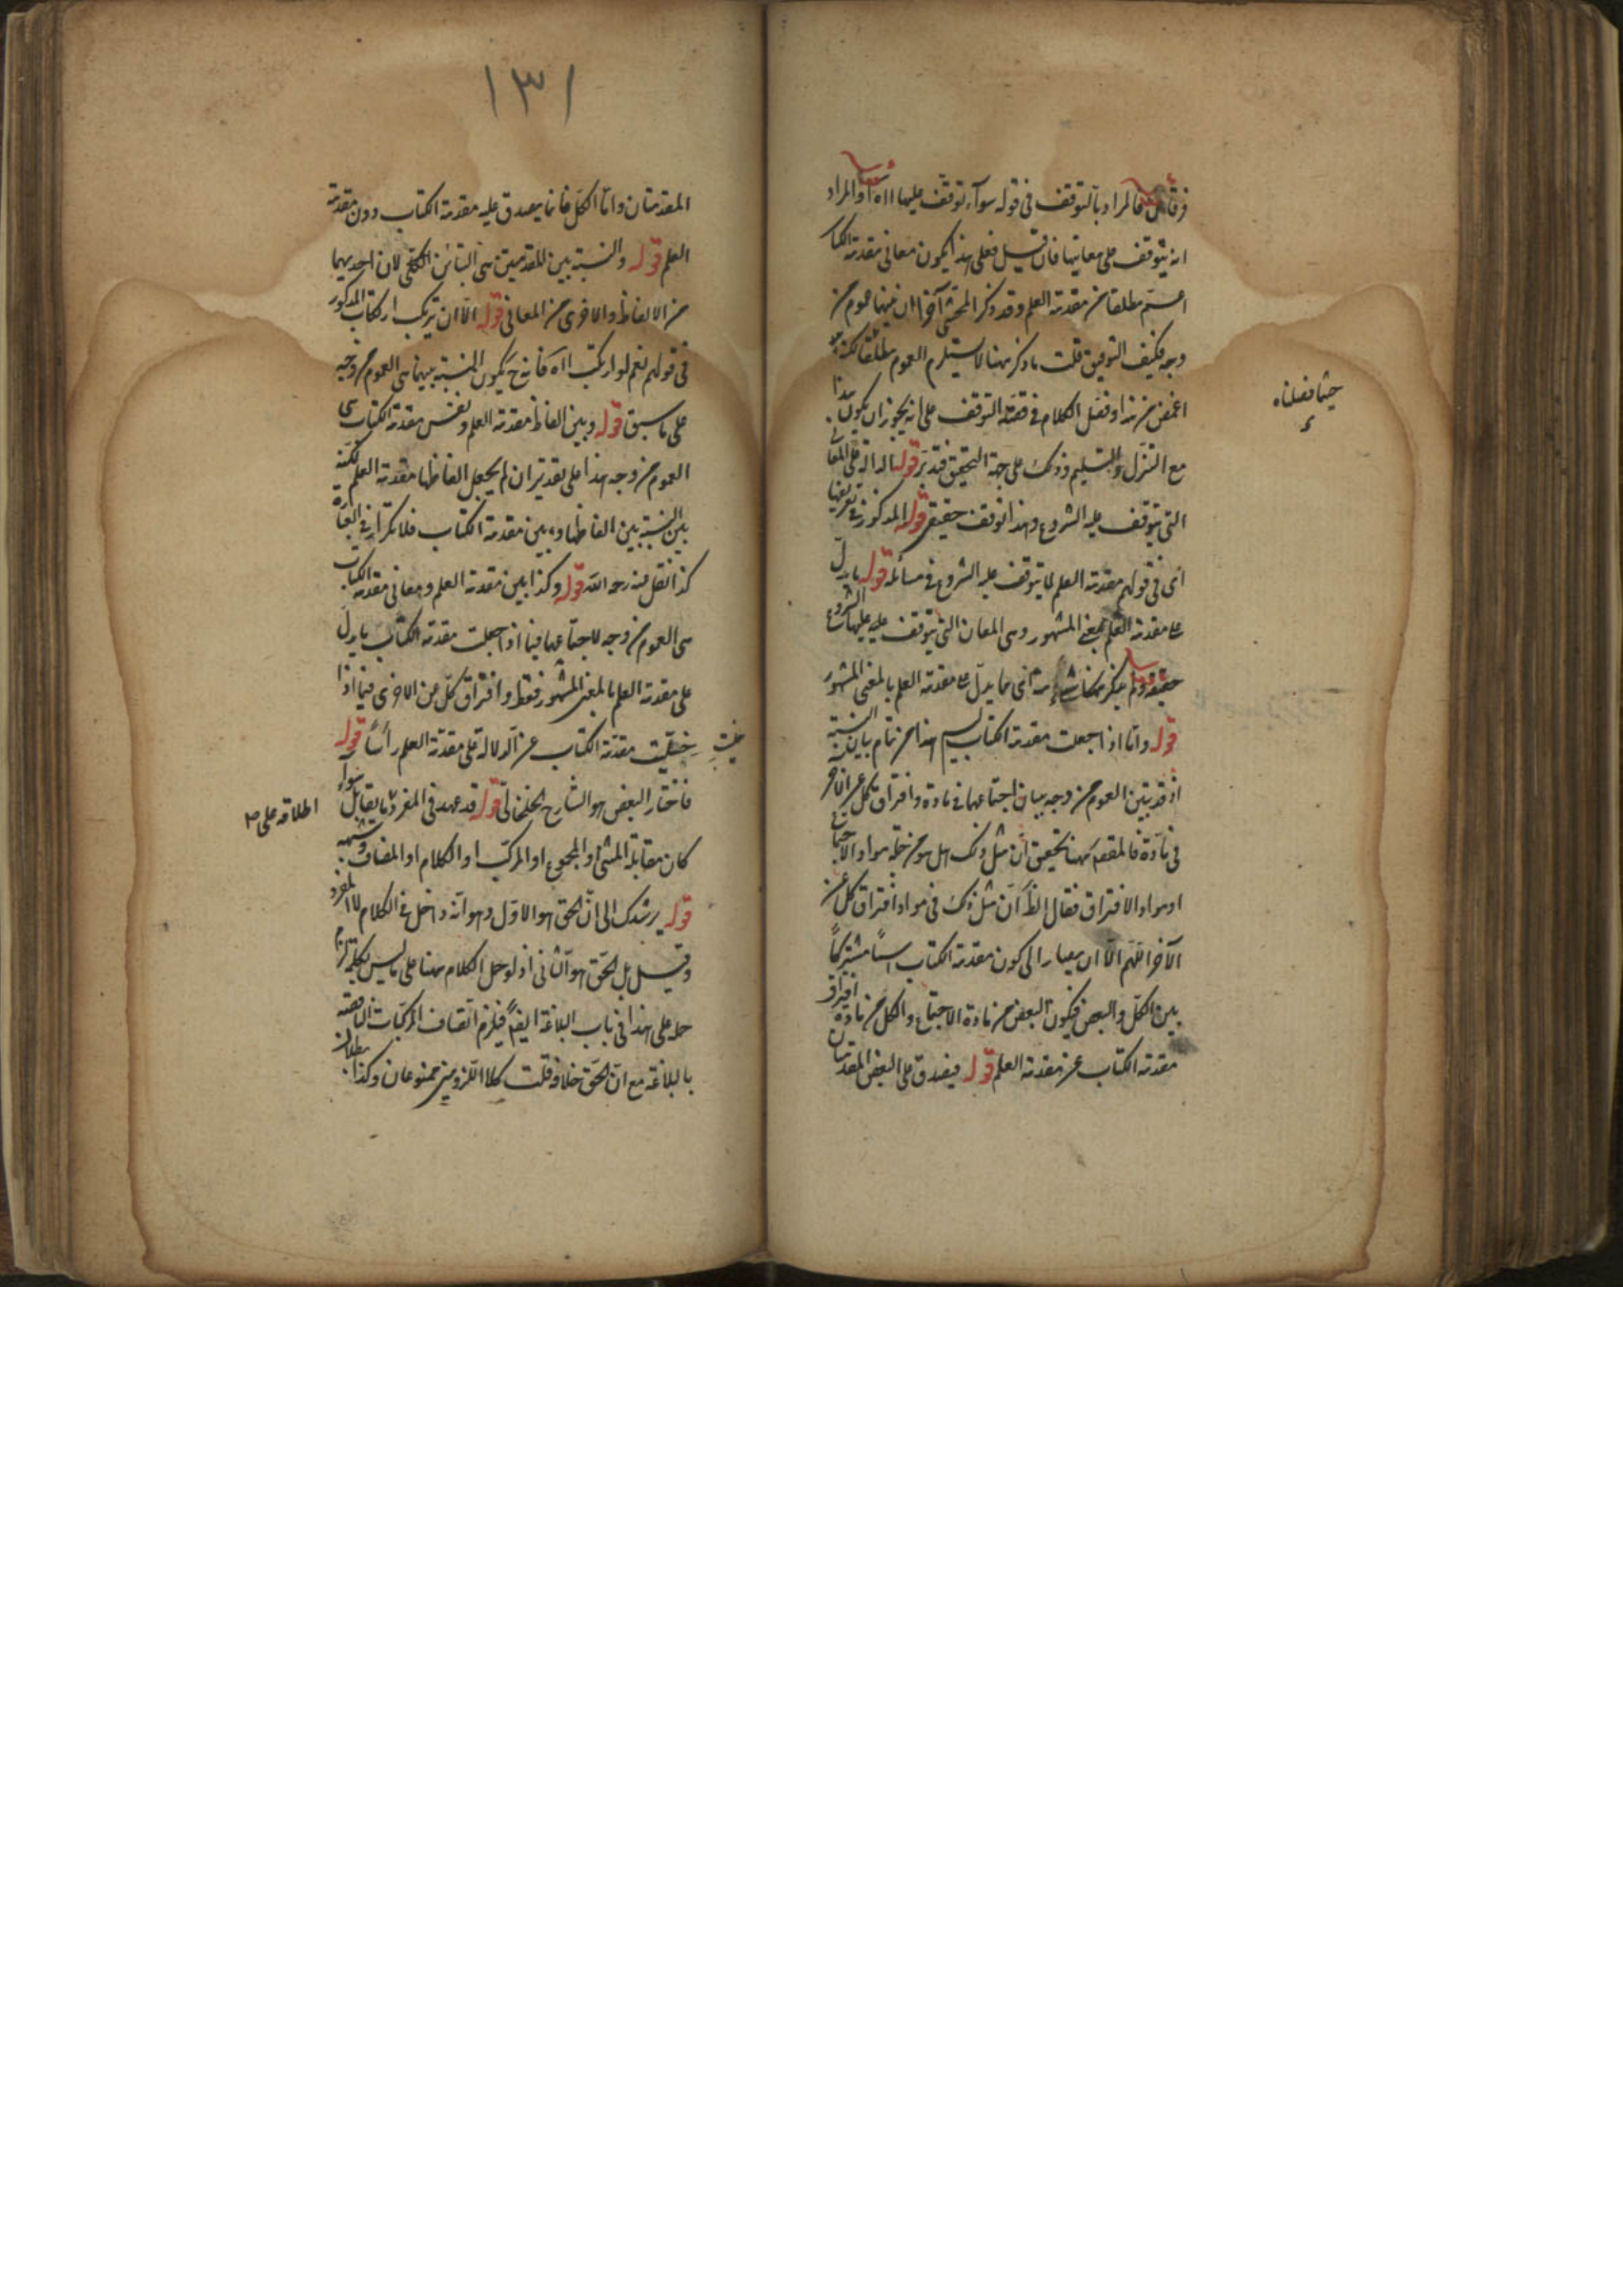 فالمراد بالتوقف في قوله سوآء توقف عليها ااه او المراد
انه يتوقف على معانيها فان قيل فعلى هذا يكون معاني مقدمة الكتاب
اعم مطلقا من مقدمة العلم وقد ذكر المحشي آخرا ان فيها عموم من
وجه فكيف التوفيق قلت ما ذكر ههنا لا يستلزم العموم مطلقا لكنه
اغمض من هذا وفصل الكلام في قصة التوقف على انه يجوز ان يكون هذا
حيثما فصلناه
مع التنزل والتسليم وذلك على جهة التحقيق فتدبر قوله الدالة على المعاني
التي يتوقف عليه الشروع وهذا توقف حقيقي قوله المذكور في تعريفها
اى في قولهم مقدمة العلم لما يتوقف عليه الشروع في مسائله قوله ما يدل
على مقدمة العلم بمعنى المشهور وهي المعان التي يتوقف عليه عليها الشروع
حقيقة ولم يذكر هناك شىء مما يدل على مقدمة العلم بالمعنى المشهور
قوله واما اذا جعلت مقدمة الكتاب ليس هذا من تمام بيان النسبة
اذ قد تبين العموم من وجه ببيان اجتماعهما في مادة وافتراق كل عن الآخر
في مادة فالمقصد ههنا تحقيق ان مثل ذلك هل هو من جملة مواد الاجتماع
او مواد الافتراق فقال الظ ان مثل ذلك في مواد افتراق كل عن
الآخر اللهم الا ان يصار الى كون مقدمة الكتاب اسما مشتركا
بين الكل والبعض فيكون البعض من مادة الاجتماع والكل من مادة افتراق
مقدمة الكتاب عن مقدمة العلم قوله فيصدق على البعض المقدمتان
١٣١
المقدمتان واما الكل فانما يصدق عليه مقدمة الكتاب دون مقدمة
العلم قوله والنسبة بين المقدمتين هي التباين الكلي لان احديهما
من الالفاظ والاخرى من المعاني قوله الا ان يرتكب ارتكاب المذكور
في قولهم نعم لو ارتكب ااه فانه ح يكون النسبة بينهما هي العموم من وجه
على ما سبق قوله وبين الفاظ مقدمة العلم ونفس مقدمة الكتاب هي
العموم من وجه هذا على تقدير ان لم يجعل الفاظها مقدمة العلم لكنه
بين النسبة بين الفاظها وبين مقدمة الكتاب فلا تكرار في العبارة
كذا نقل منه رحمه الله قوله وكذا بين مقدمة العلم ومعاني مقدمة الكتاب
هي العموم من وجه لاجتماعهما فيما اذا جعلت مقدمة الكتاب ما يدل
على مقدمة العلم بالمعنى المشهور فقط وافتراق كل من الاخرى فيما اذا
خليت مقدمة الكتاب عن الدلالة على مقدمة العلم رأسا قوله
فاختار البعض هو الشارح الخلخالي قوله قد عهد في المفرد ما يقابل سواء
اطلاقه على
كان مقابلة المثنى او المجموع او المركب او الكلام او المضاف وشبهه
قوله يرشدك الى ان الحق هو الاول وهو انه داخل في الكلام لا المفرد
وقيل بل الحق هو الثاني اذ لو حمل الكلام ههنا على ما ليس بكلمة لزم
حمله على هذا في باب البلاغة ايضا فيلزم اتصاف المركبات الناقصة
بالبلاغة مع ان الحق خلافه قلت كلا اللزومين ممنوعان وكذا بطلان